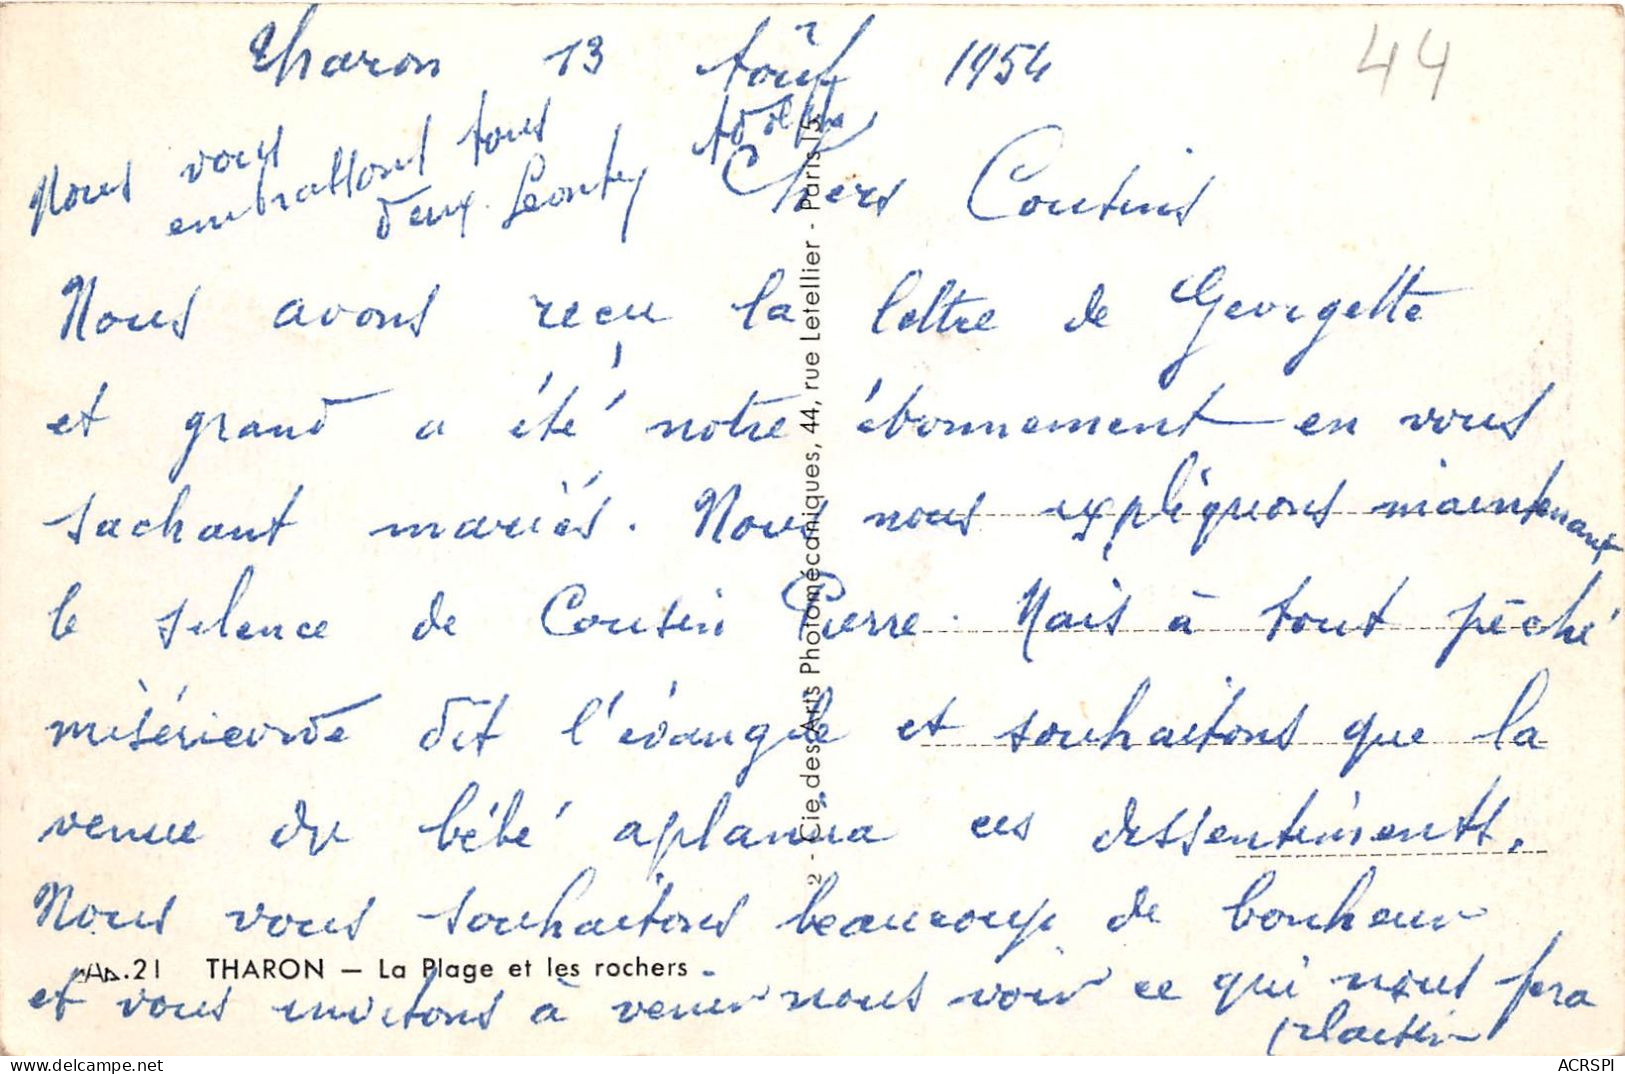 Tharon 13 Août 1954
44
Nous vous
embrassons tous
deux. Leonty Adolphe
Chers Cousins
Nous avons reçu la lettre de Georgette
et grand a été notre ébonnement en vous
sachant mariés. Nous nous expliquons maintenant
le silence de Cousin Pierre. Mais à tout péché
miséricorde dit l'évangile et souhaitons que la
venue du bébé aplanira ces dissentiments.
Nous vous souhaitons beaucoup de bonheur
et vous invitons à venir nous voir ce qui nous fera
plaisir
21 THARON — La Plage et les rochers.
2 - Cie des Arts Photomécaniques, 44, rue Letellier - Paris 15
ACRSPI